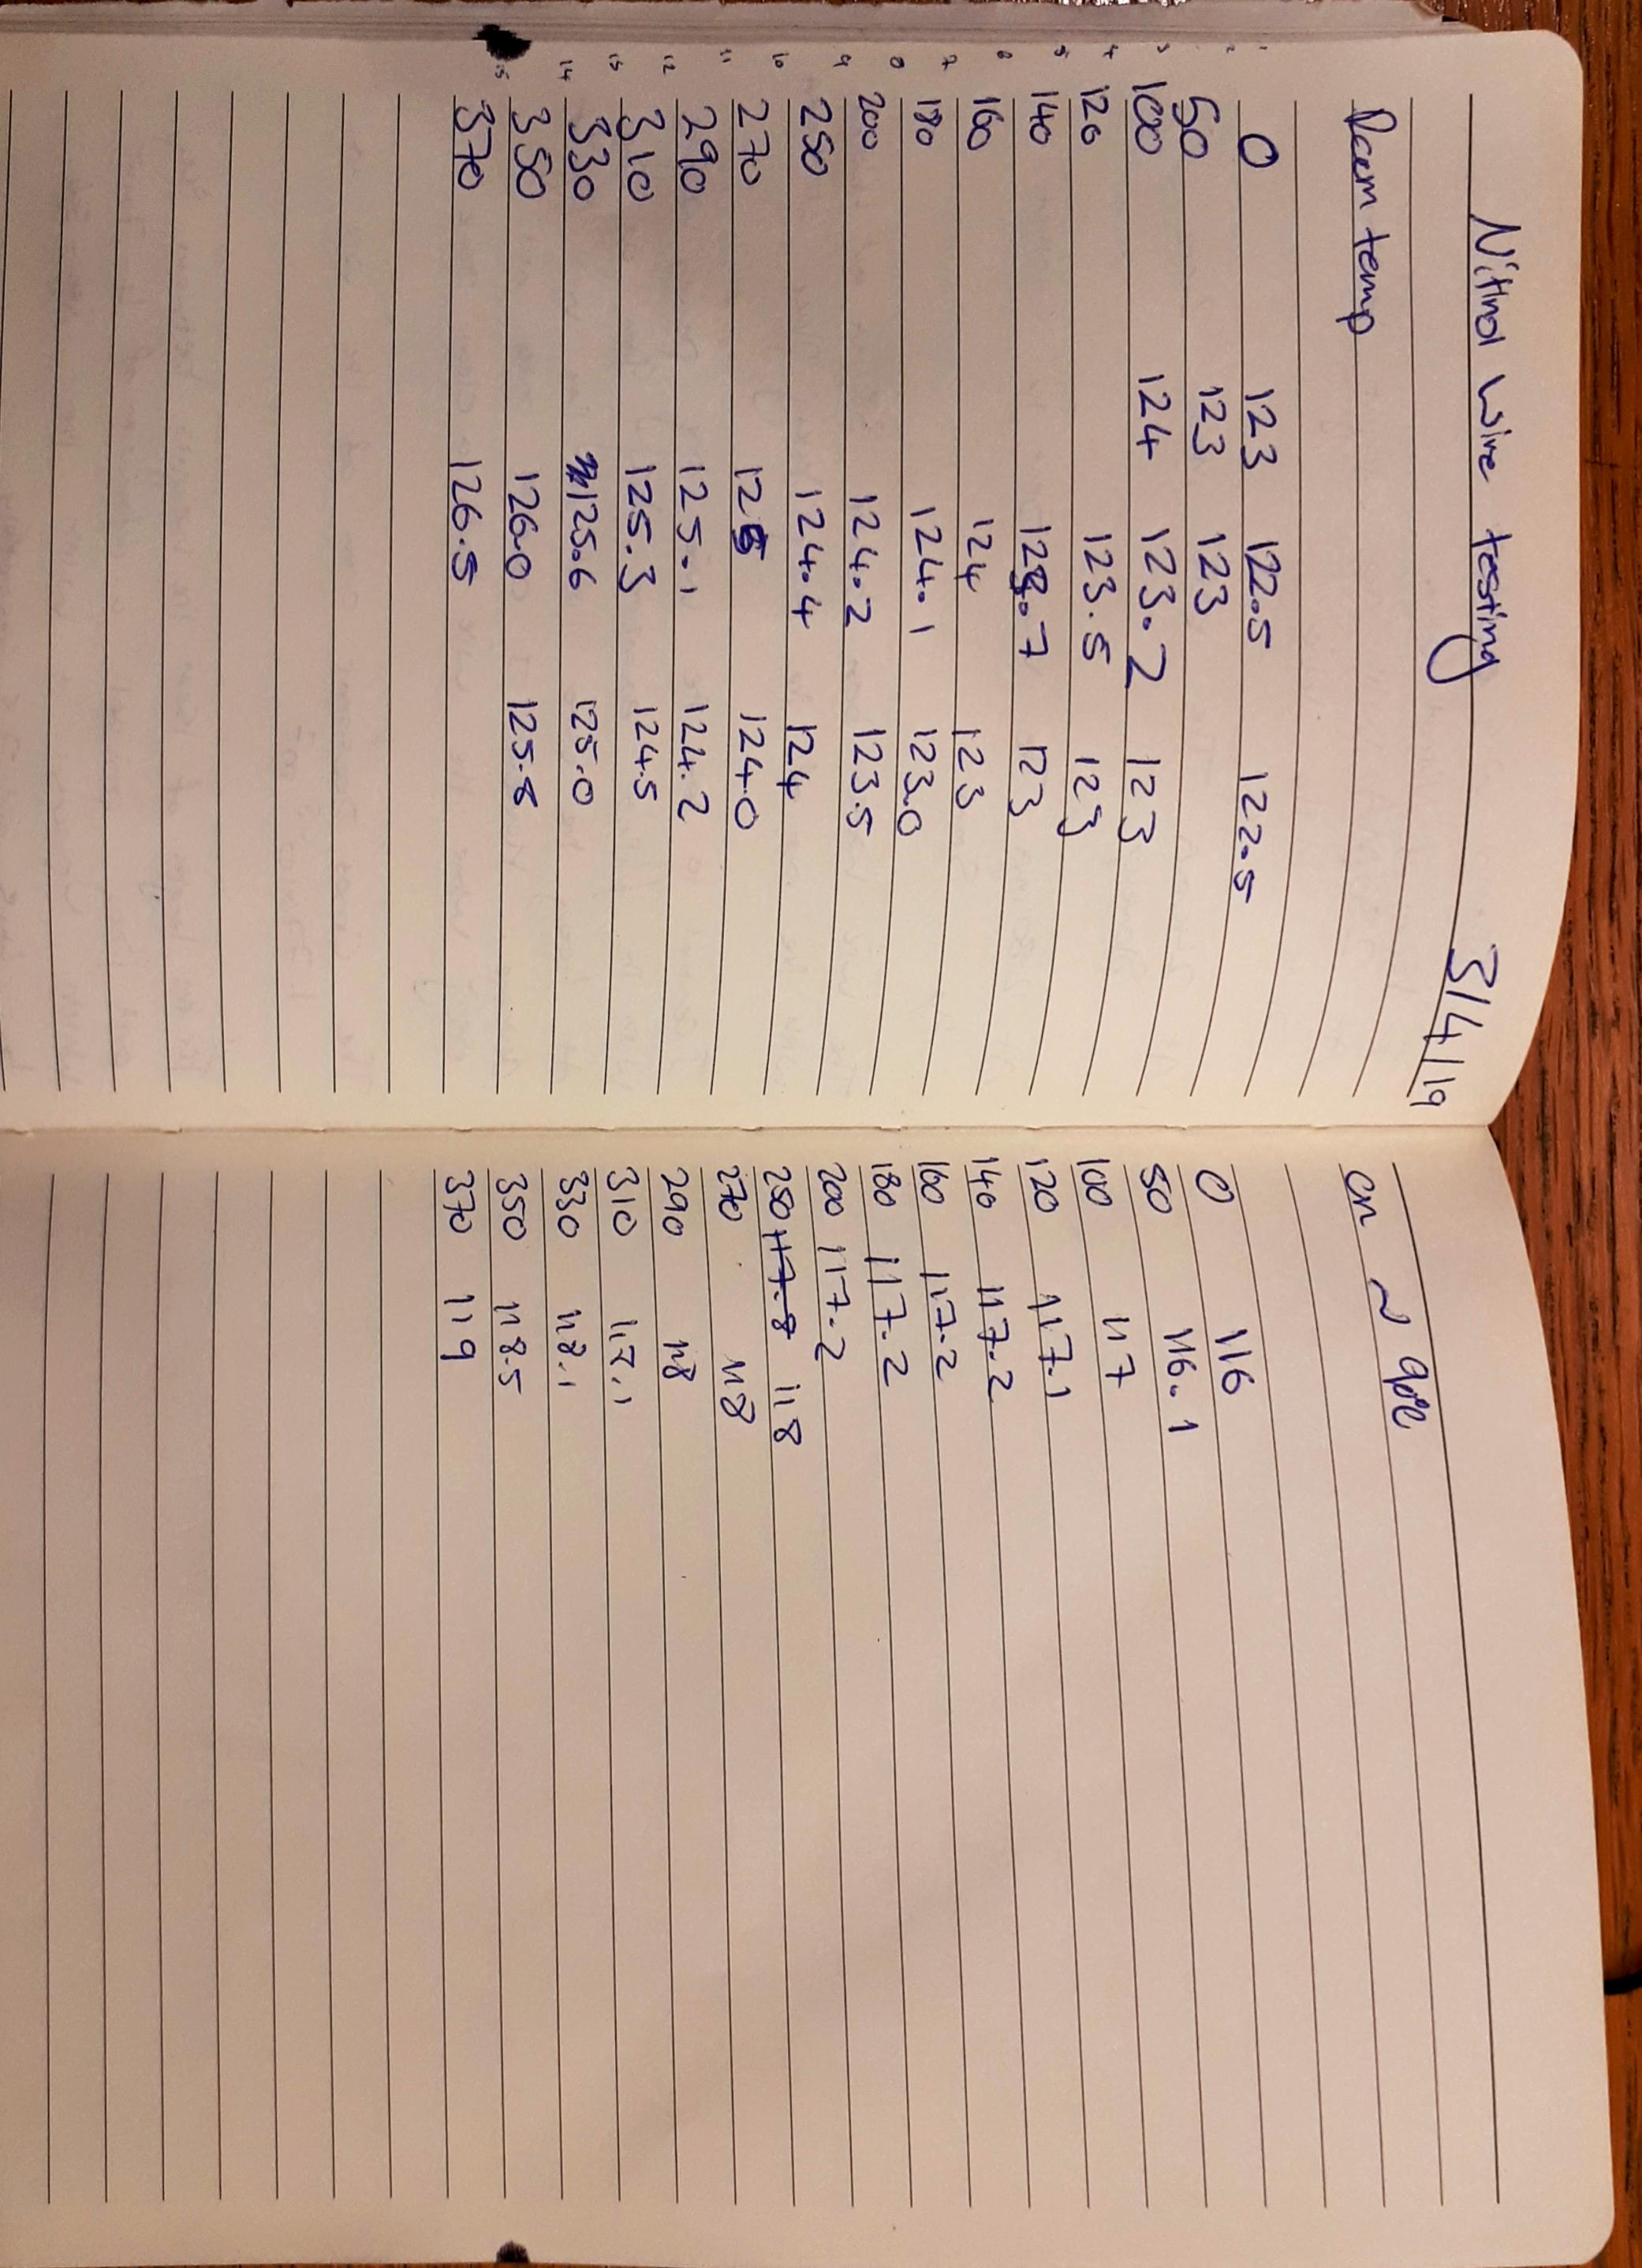 Nitinol Wire testing 3/4/19
Room temp
1 0 123 122.5 122.5
2 50 123 123
3 100 124 123.2 123
4 120 123.5 123
5 140 123.7 123
6 160 124 123
7 180 124.1 123.0
8 200 124.2 123.5
9 250 124.4 124
10 270 125 124.0
11 290 125.1 124.2
12 310 125.3 124.5
13 330 125.6 125.0
14 350 126.0 125.8
15 370 126.5
on ~ 90%
0 116
50 116.1
100 117
120 117.1
140 117.2
160 117.2
180 117.2
200 117.2
250 117.8 118
270 118
290 118
310 117.1
330 118.1
350 118.5
370 119